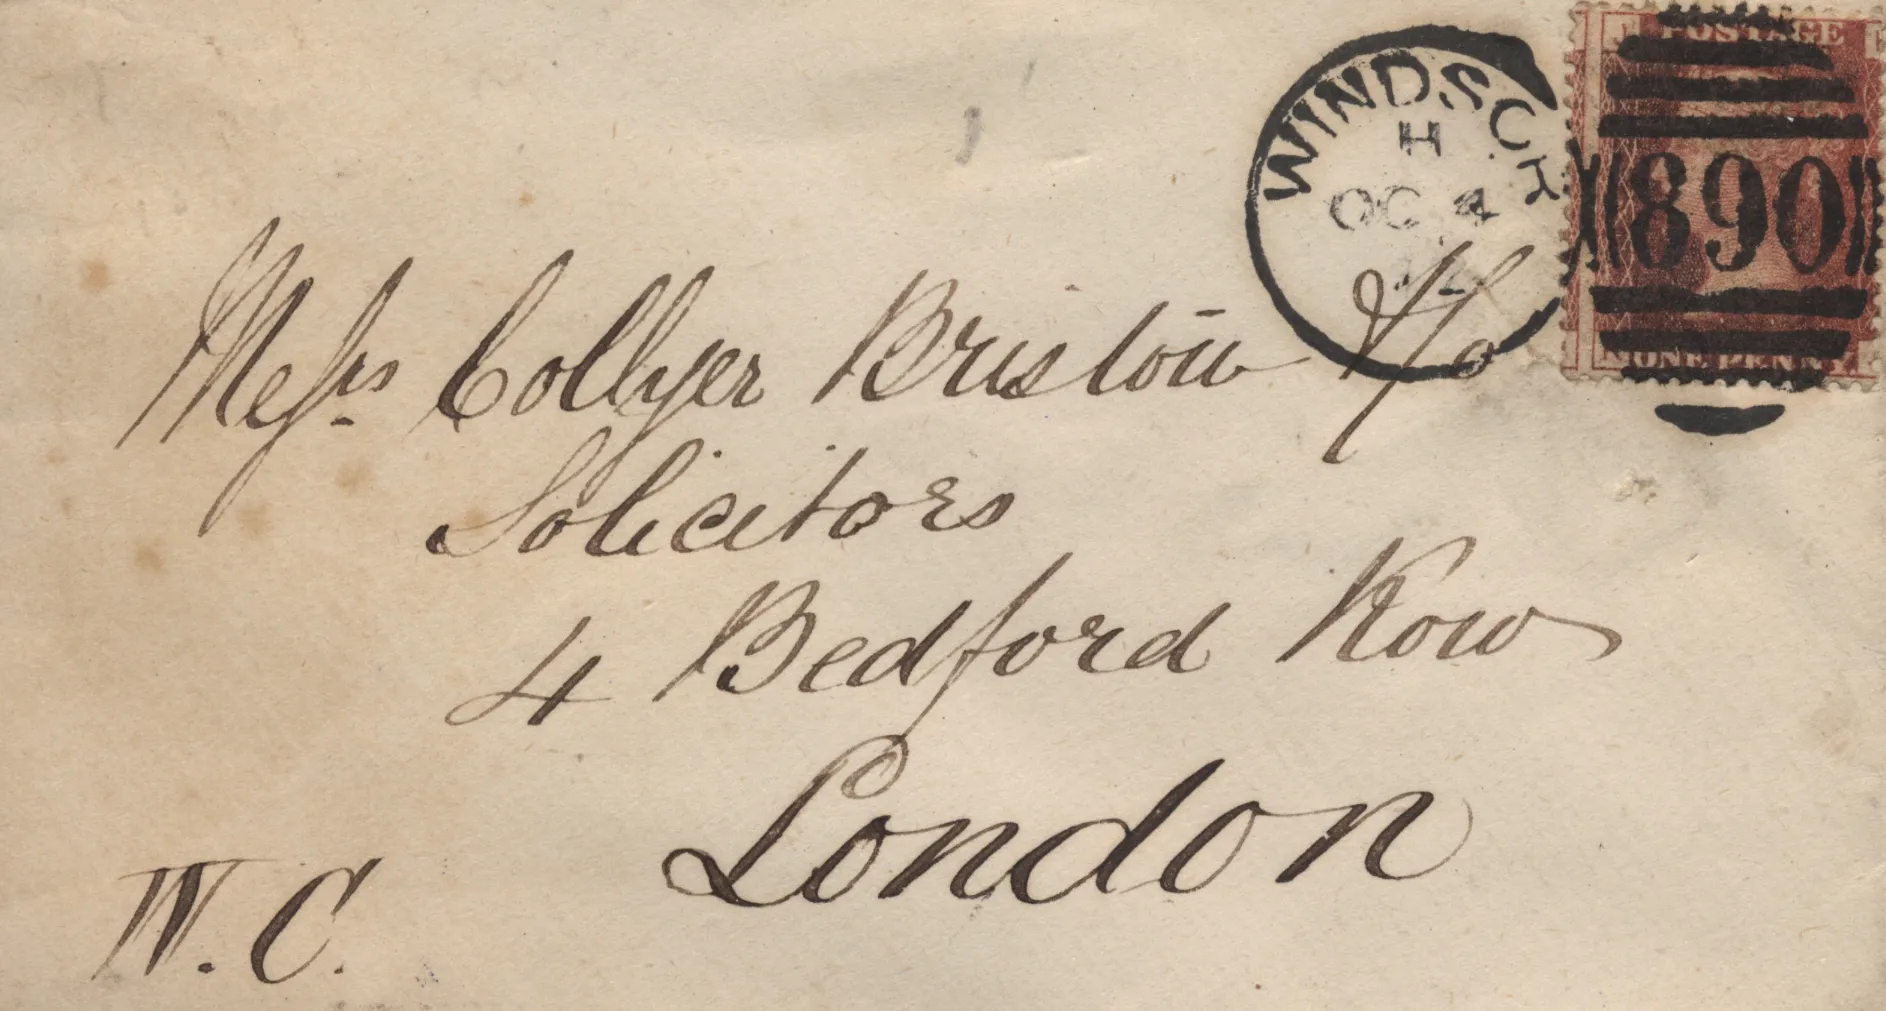 WINDSOR
H
OC 4
72
J POSTAGE
890
ONE PENNY
Messrs Collyer Bristow & Co
Solicitors
4 Bedford Row
London
W.C.